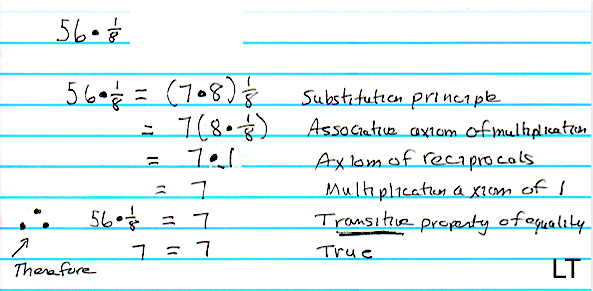 56•1/8
56•1/8 = (7•8)1/8 Substitution principle
= 7(8•1/8) Associative axiom of multiplication
= 7•1 Axiom of reciprocals
= 7 Multiplication axiom of 1
∴ 56•1/8 = 7 Transitive property of equality
7 = 7 True
Therefore
LT